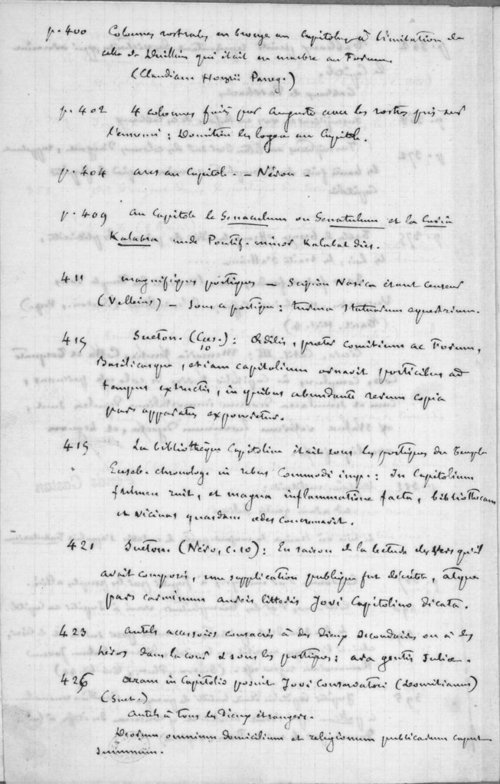 p. 400 Colonnes rostrales en bronze au Capitole, à l'imitation de
celle de Duillius qui était en marbre au Forum.
(Claudian Honorii Paneg.)
p. 402 4 colonnes faites par Auguste avec les rostres pris sur
l'ennemi ; Domitien les logea au Capitol.
p. 404 arcs au Capitole. - Néron -
p. 409 Au Capitole le Senaculum ou Senatulum et la Curia
Kalabra unde Pontif. minor Kalabat dies.
411 magnifiques portiques — Scipion Nasica étant censeur
(Velleius) — sous ce portique : turma statuarum equestrium.
415 Sueton. (Caes. 10) : Ædilis, praeter comitium ac Forum,
Basilicasque, etiam capitolium ornavit porticibus ad
tempus extructis, in quibus abundante rerum copia
pars apparatus exponeretur.
419 La bibliothèque Capitoline était sous les portiques du temple
Euseb. chronolog. in rebus Commodi imp. : In Capitolium
fulmen ruit, et magna inflammatione facta, bibliothecam
et vicinas quasdam aedes concremavit.
421 Sueton. (Néro, c. 10) : En raison de la lecture des vers qu'il
avait composés, une supplication publique fut décrétée, atque
pars carminum aureis litteris Jovi Capitolino dicata.
423 Autels accessoires consacrés à des Dieux secondaires ou à des
héros dans la cour et sous les portiques : ara gentis Juliae.
426 aram in Capitolio posuit Jovi Conservatori (Domitianus)
(Suet.)
Autels à tous les Dieux étrangers.
Deorum omnium domicilium et religionum publicarum caput
summum.